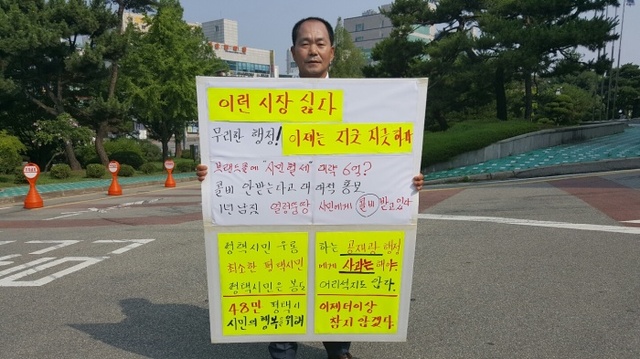 이런 시장 싫다
무리한 행정! 이제는 지긋 지긋하다
브랜드콜에 "시민혈세" 매학 6억?
콜비 안받는다고 대대적 홍보
1년 남짓 얼렁뚱땅 시민에게 콜비 받고있다
평택시민 우롱 하는 공재광 행정
최소한 평택시민 에게 사과는 해야.
평택시민은 봉도 어리석지도 않다.
48만 평택시 이제 더이상
시민의 행복을 위해 참지 않겠다.